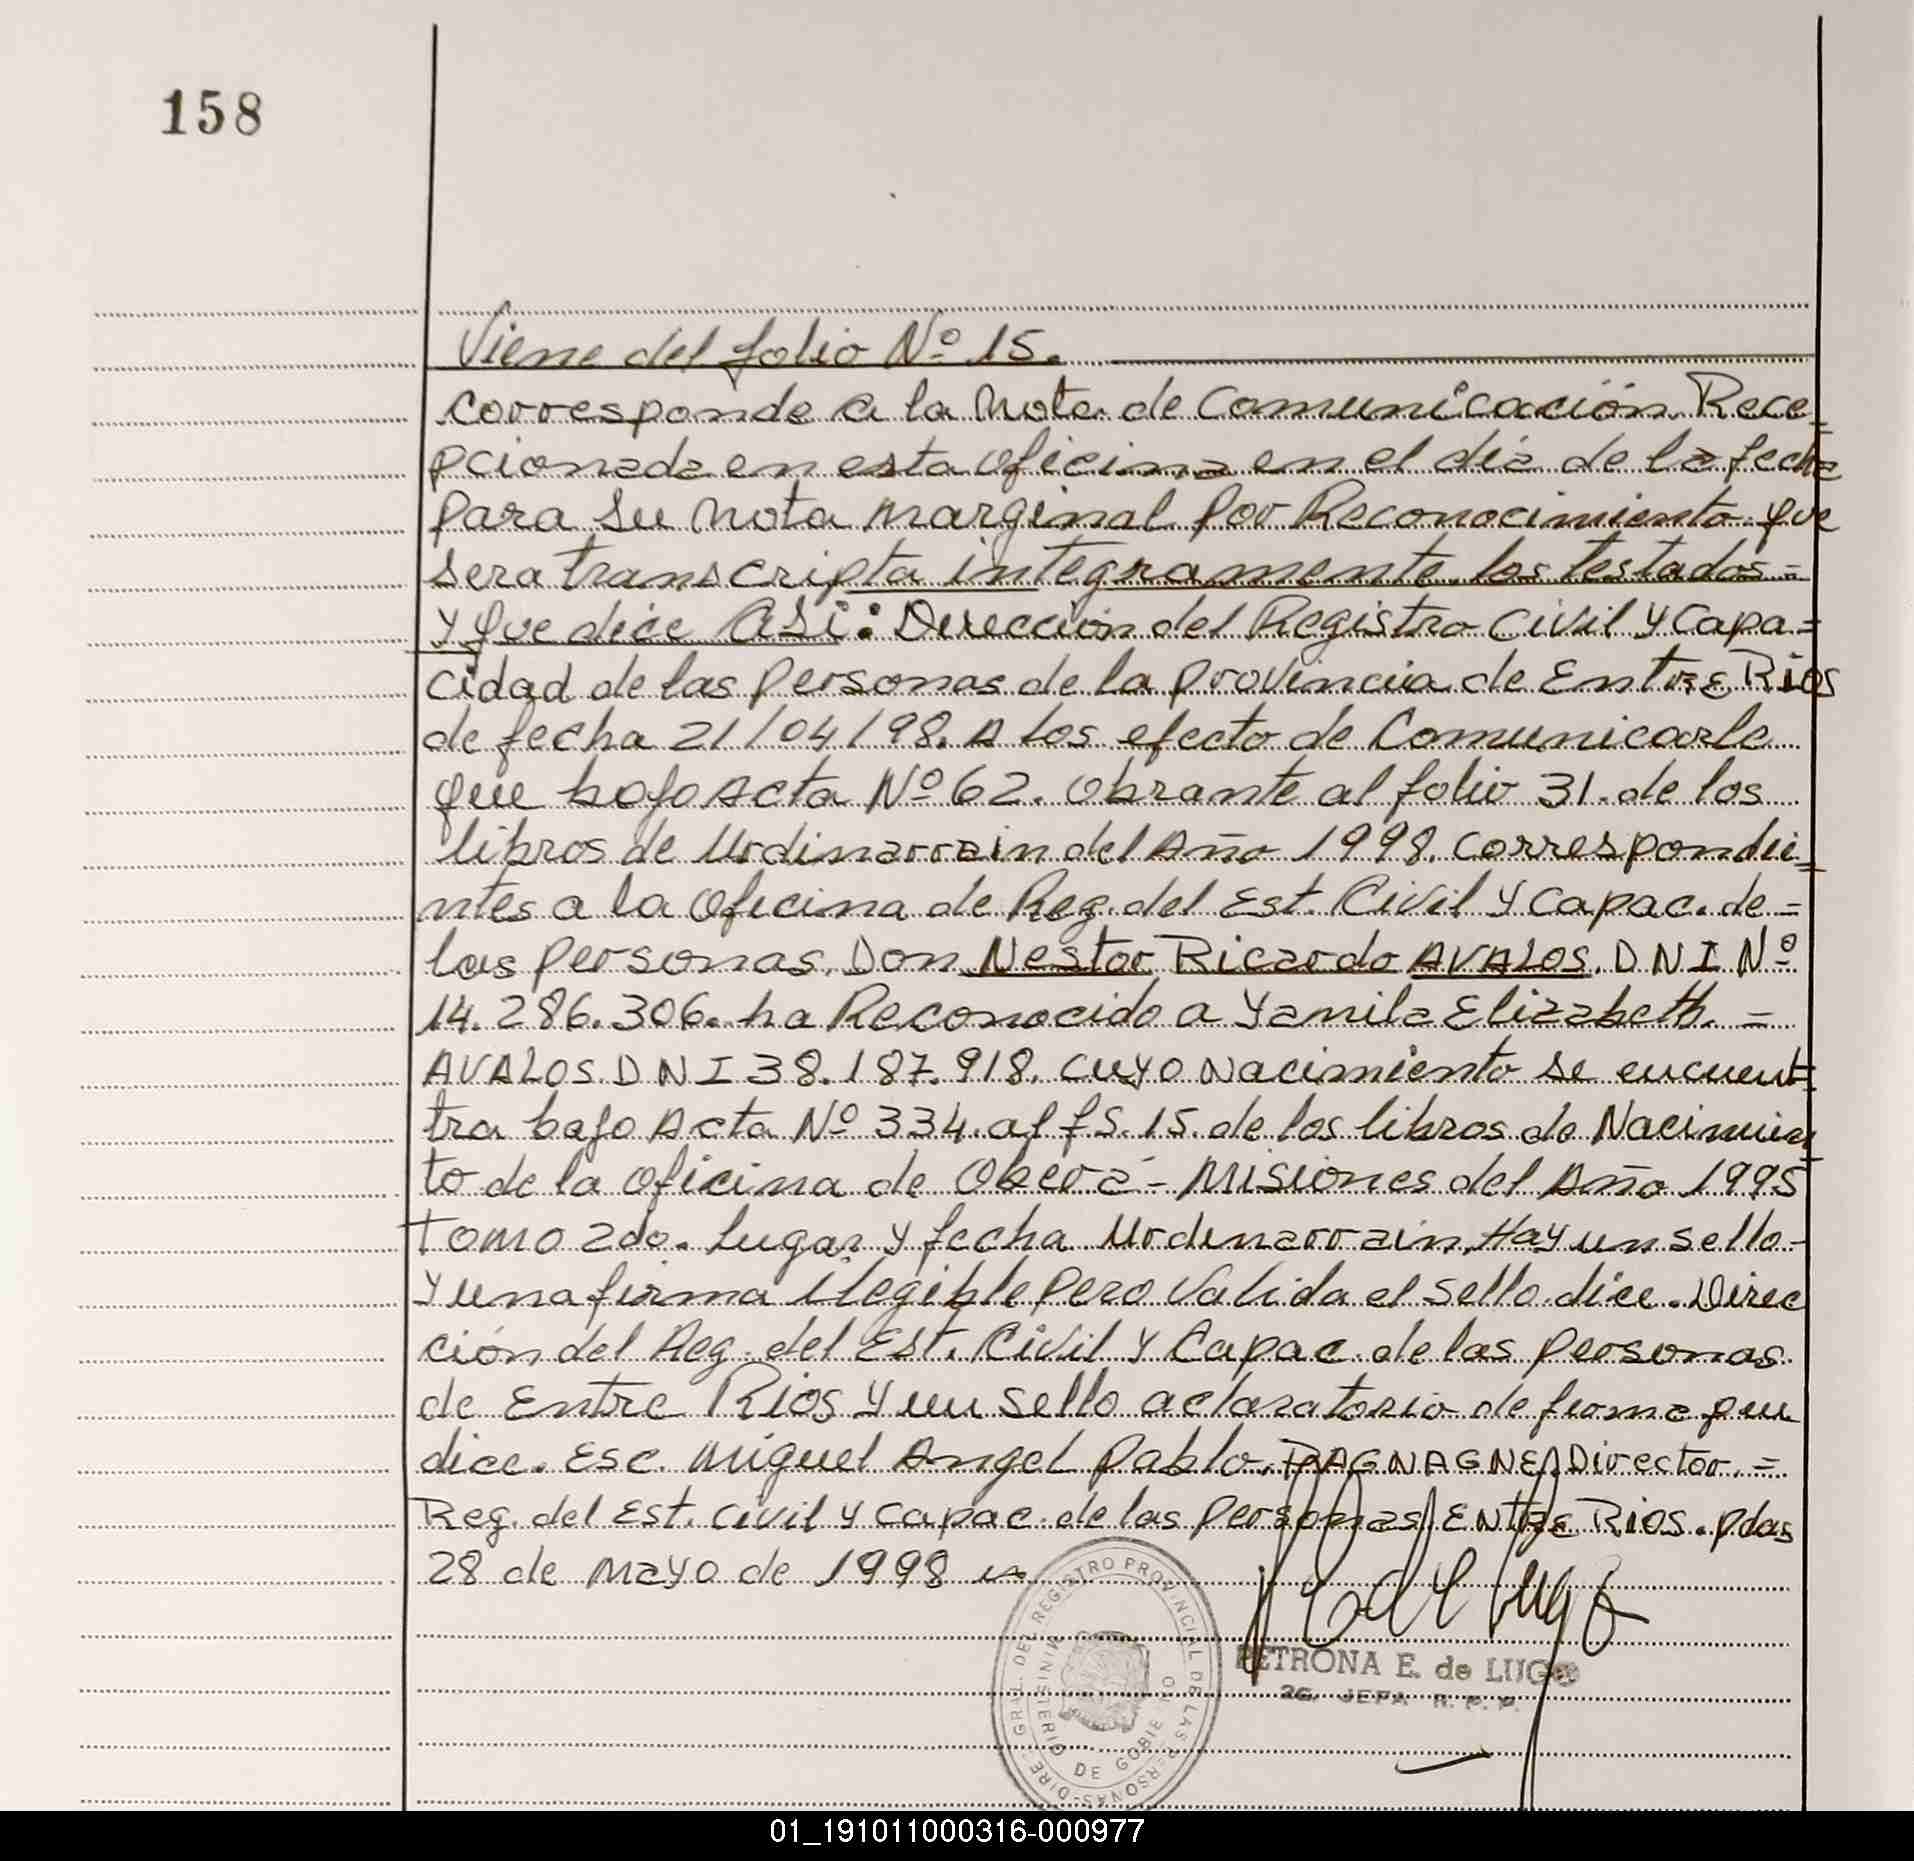 158
Viene del folio Nº 15.
corresponde a la Nota de Comunicación Rece=
pcionada en esta oficina en el día de la fecha
para su nota marginal por Reconocimiento que
sera transcripta integramente los testados =
y que dice ASi: Dirección del Registro Civil y Capa=
cidad de las personas de la provincia de Entre Rios
de fecha 21/04/98. A los efecto de Comunicarle
que bajo Acta Nº 62. obrante al folio 31. de los
libros de Urdinarrain del Año 1998. correspondie=
ntes a la oficina de Reg. del Est. Civil y Capac. de =
las personas. Don Nestor Ricardo AVALOS. DNI Nº
14.286.306. ha Reconocido a Yamila Elizabeth. =
AVALOS DNI 38.187.918. cuyo Nacimiento se encuent=
tra bajo Acta Nº 334. al fs. 15. de los libros de Nacimien=
to de la oficina de Oberá - Misiones del Año 1995
Tomo 2do. Lugar y fecha Urdinarrain. Hay un sello -
y una firma ilegible pero valida el sello dice. Direc
ción del Reg. del Est. Civil y Capac. de las personas
de Entre Rios y un sello aclaratorio de firma que
dice. Esc. Miguel Angel Pablo. PAGNAGNE Director. =
Reg. del Est. civil y capac. de las personas Entre Rios. pdas
28 de mayo de 1998
DIRE. GRAL. DEL REGISTRO PROVINCIAL DE LAS PERSONAS
MINISTERIO DE GOBIERNO
PETRONA E. de LUGO
2G. JEFA R. P. P.
01_191011000316-000977